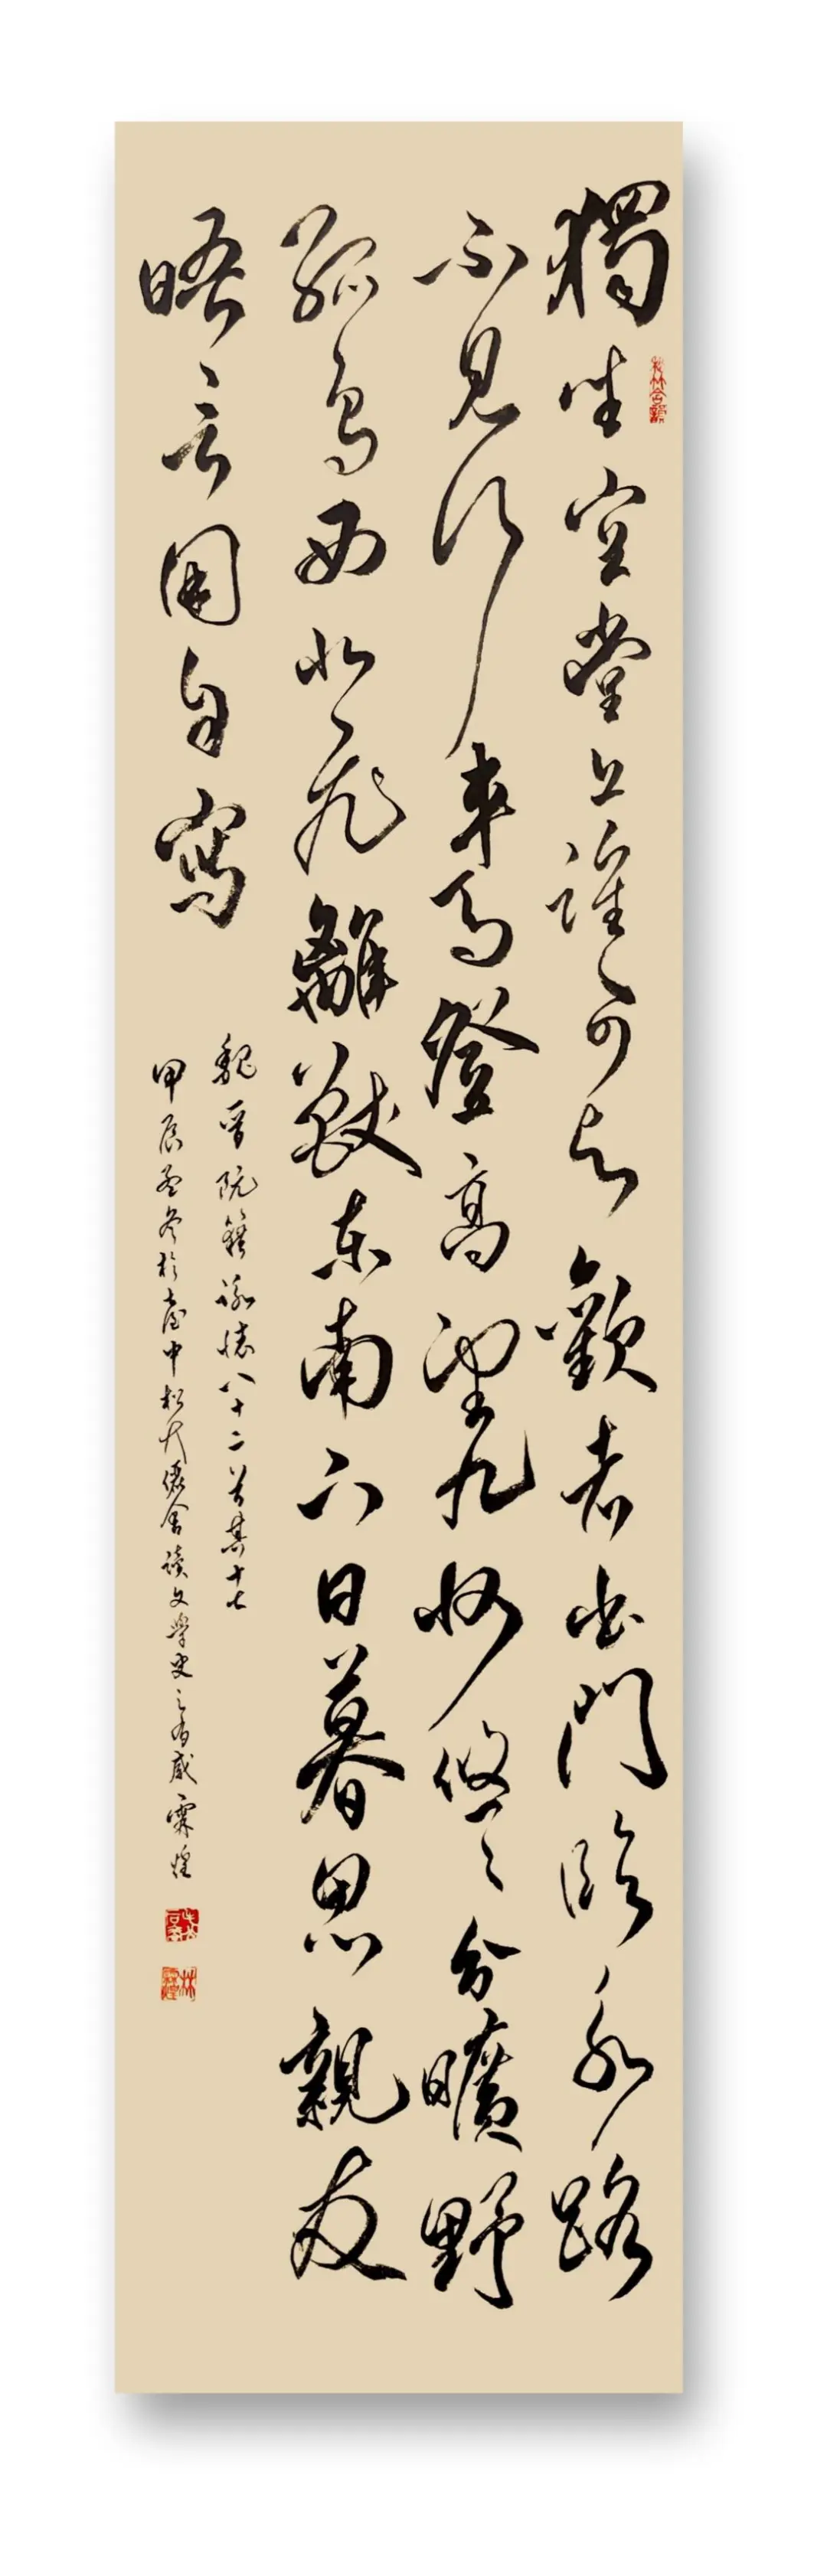 獨坐空堂上誰可與歡者出門臨永路
不見行車馬登高望九州悠〻分曠野
孤鳥西北飛離獸東南下日暮思親友
晤言用自寫
魏晉阮籍詠懷八十二首其十七
甲辰孟冬於臺中松大舍讀文學史之有感霖煌